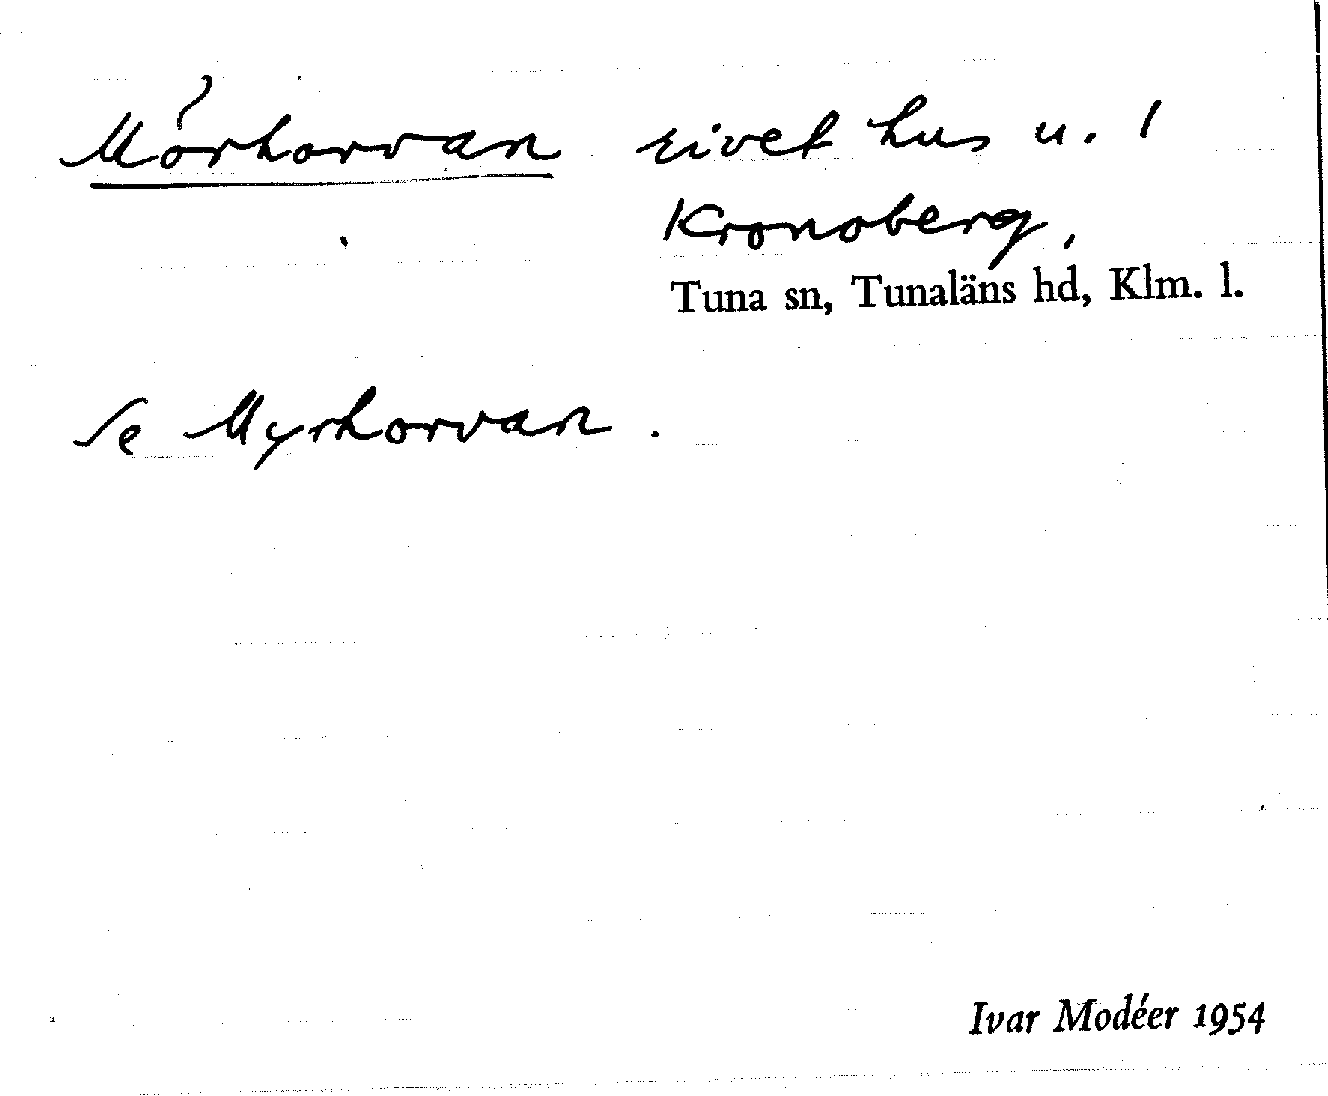 Mörkorvan rivet hus u. 1
Kronoberg,
Tuna sn, Tunaläns hd, Klm. l.
Se Myrkorvan.
Ivar Modéer 1954